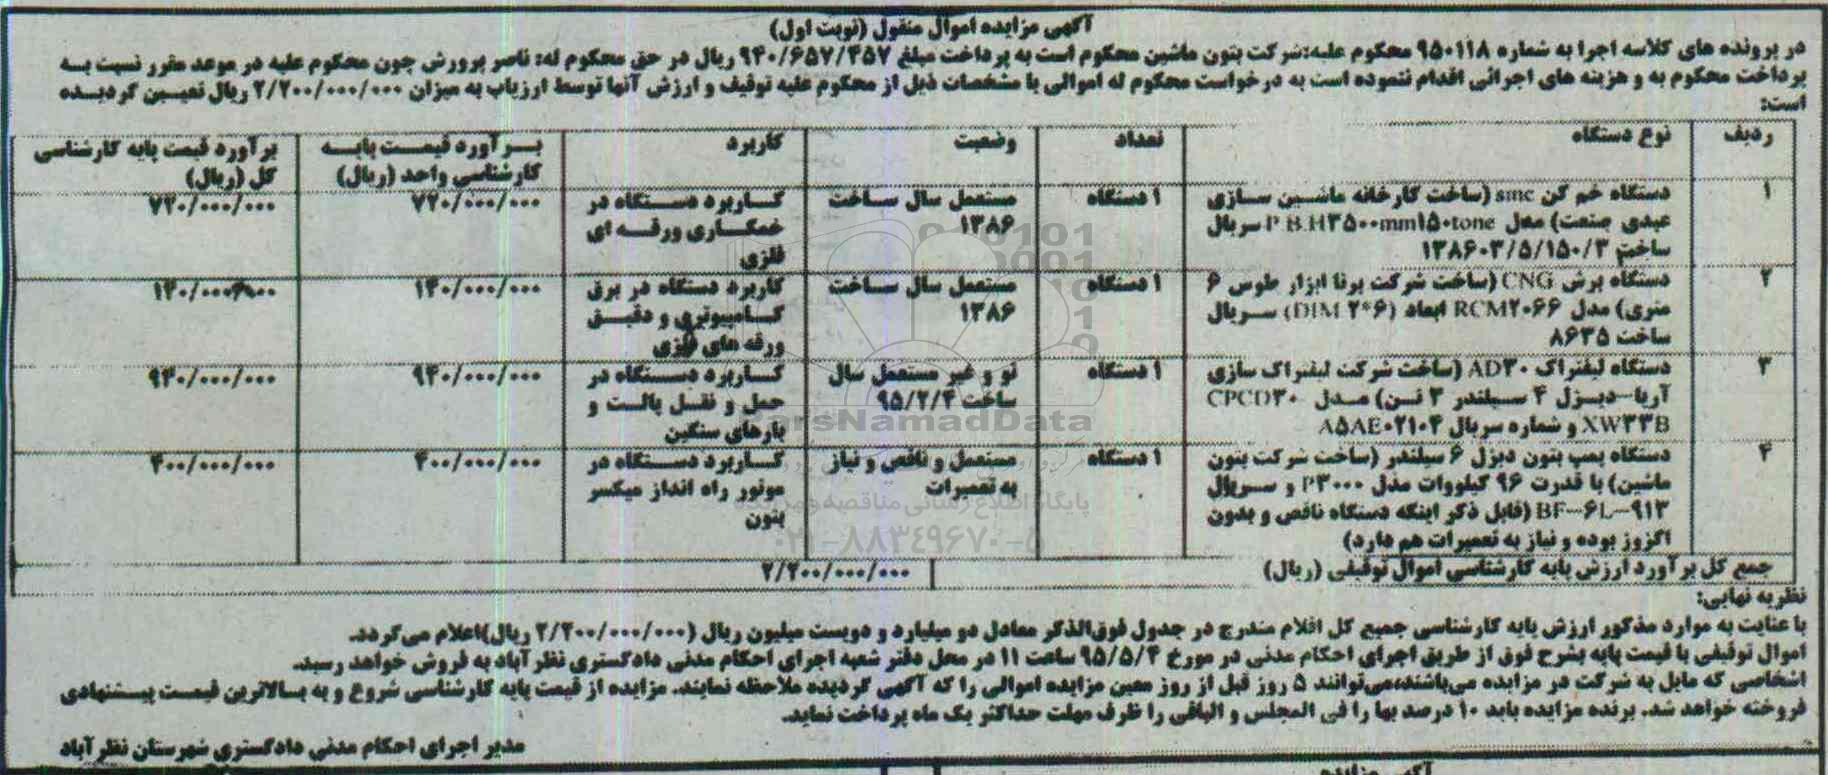 آگهی مزایده اموال منقول (نوبت اول)
در پرونده های کلاسه اجرا به شماره ۹۵۰۱۱۸ محکوم علیه:شرکت بتون ماشین محکوم است به پرداخت مبلغ ۹۴۰/۶۵۷/۴۵۷ ریال در حق محکوم له: ناصر پرورش چون محکوم علیه در موعد مقرر نسبت به
پرداخت محکوم به و هزینه های اجرائی اقدام ننموده است به درخواست محکوم له اموالی با مشخصات ذیل از محکوم علیه توقیف و ارزش آنها توسط ارزیاب به میزان ۲/۲۰۰/۰۰۰/۰۰۰ ریال تعیین گردیده
است:
ردیف نوع دستگاه تعداد وضعیت کاربرد برآورد قیمت پایه کارشناسی واحد (ریال) برآورد قیمت پایه کارشناسی کل (ریال)
۱ دستگاه خم کن smc (ساخت کارخانه ماشین سازی عبدی صنعت) مدل P.B.H۳۵۰۰mm۱۵۰tone سریال ساخت ۱۳۸۶۰۳/۵/۱۵۰/۳ ۱ دستگاه مستعمل سال ساخت ۱۳۸۶ کاربرد دستگاه در خمکاری ورقه ای فلزی ۷۲۰/۰۰۰/۰۰۰ ۷۲۰/۰۰۰/۰۰۰
۲ دستگاه برش CNG (ساخت شرکت برنا ابزار طوس ۶ متری) مدل RCM۲۰۶۶ ابعاد (DIM ۲*۶) سریال ساخت ۸۶۳۵ ۱ دستگاه مستعمل سال ساخت ۱۳۸۶ کاربرد دستگاه در برق کامپیوتری و دقیق ورقه های فلزی ۱۴۰/۰۰۰/۰۰۰ ۱۴۰/۰۰۰/۰۰۰
۳ دستگاه لیفتراک AD۳۰ (ساخت شرکت لیفتراک سازی آریا-دیزل ۴ سیلندر ۳ تن) مدل CPCD۳۰ XW۳۳B و شماره سریال A۵AE۰۲۱۰۴ ۱ دستگاه نو و غیر مستعمل سال ساخت ۹۵/۲/۴ کاربرد دستگاه در حمل و نقل پالت و بارهای سنگین ۹۴۰/۰۰۰/۰۰۰ ۹۴۰/۰۰۰/۰۰۰
۴ دستگاه پمپ بتون دیزل ۶ سیلندر (ساخت شرکت بتون ماشین) با قدرت ۹۶ کیلووات مدل P۳۰۰۰ و سریال BF-۶L-۹۱۳ (قابل ذکر اینکه دستگاه ناقص و بدون اگزوز بوده و نیاز به تعمیرات هم دارد) ۱ دستگاه مستعمل و ناقص و نیاز به تعمیرات کاربرد دستگاه در موتور راه انداز میکسر بتون ۴۰۰/۰۰۰/۰۰۰ ۴۰۰/۰۰۰/۰۰۰
جمع کل برآورد ارزش پایه کارشناسی اموال توقیفی (ریال) ۲/۲۰۰/۰۰۰/۰۰۰
نظریه نهایی:
با عنایت به موارد مذکور ارزش پایه کارشناسی جمیع کل اقلام مندرج در جدول فوق‌الذکر معادل دو میلیارد و دویست میلیون ریال (۲/۲۰۰/۰۰۰/۰۰۰ ریال)اعلام می‌گردد.
اموال توقیفی با قیمت پایه بشرح فوق از طریق اجرای احکام مدنی در مورخ ۹۵/۵/۴ ساعت ۱۱ در محل دفتر شعبه اجرای احکام مدنی دادگستری نظرآباد به فروش خواهد رسید.
اشخاصی که مایل به شرکت در مزایده می‌باشند،می‌توانند ۵ روز قبل از روز معین مزایده اموالی را که آگهی گردیده ملاحظه نمایند. مزایده از قیمت پایه کارشناسی شروع و به بالاترین قیمت پیشنهادی
فروخته خواهد شد. برنده مزایده باید ۱۰ درصد بها را فی المجلس و الباقی را ظرف مهلت حداکثر یک ماه پرداخت نماید.
مدیر اجرای احکام مدنی دادگستری شهرستان نظرآباد
ParsNamadData
پایگاه اطلاع رسانی مناقصه و مزایده
۰۲۱-۸۸۳۴۹۶۷۰-۵
آگهی مزایده